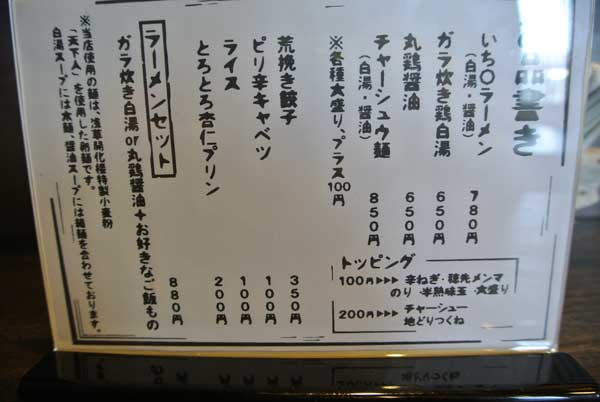 品書き
いち〇ラーメン
(白湯・醤油)
780円
ガラ炊き鶏白湯
650円
丸鶏醤油
650円
チャーシュウ麺
(白湯・醤油)
850円
※各種大盛り、プラス100円
トッピング
100円▸▸▸ 辛ねぎ・穂先メンマ
のり・半熟味玉・大盛り
200円▸▸▸ チャーシュー
地どりつくね
荒挽き餃子
350円
ピリ辛キャベツ
100円
ライス
100円
とろとろ杏仁プリン
200円
ラーメンセット
ガラ炊き白湯or丸鶏醤油+お好きなご飯もの
880円
※当店使用の麺は、浅草開化楼特製小麦粉
「天下人」を使用した卵麺です。
白湯スープには太麺、醤油スープには細麺を合わせております。